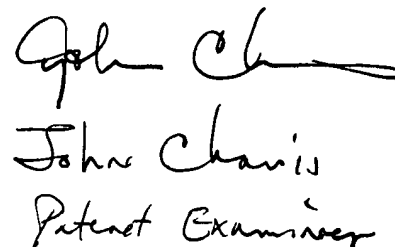 John Ch
John Chavis
Patent Examiner